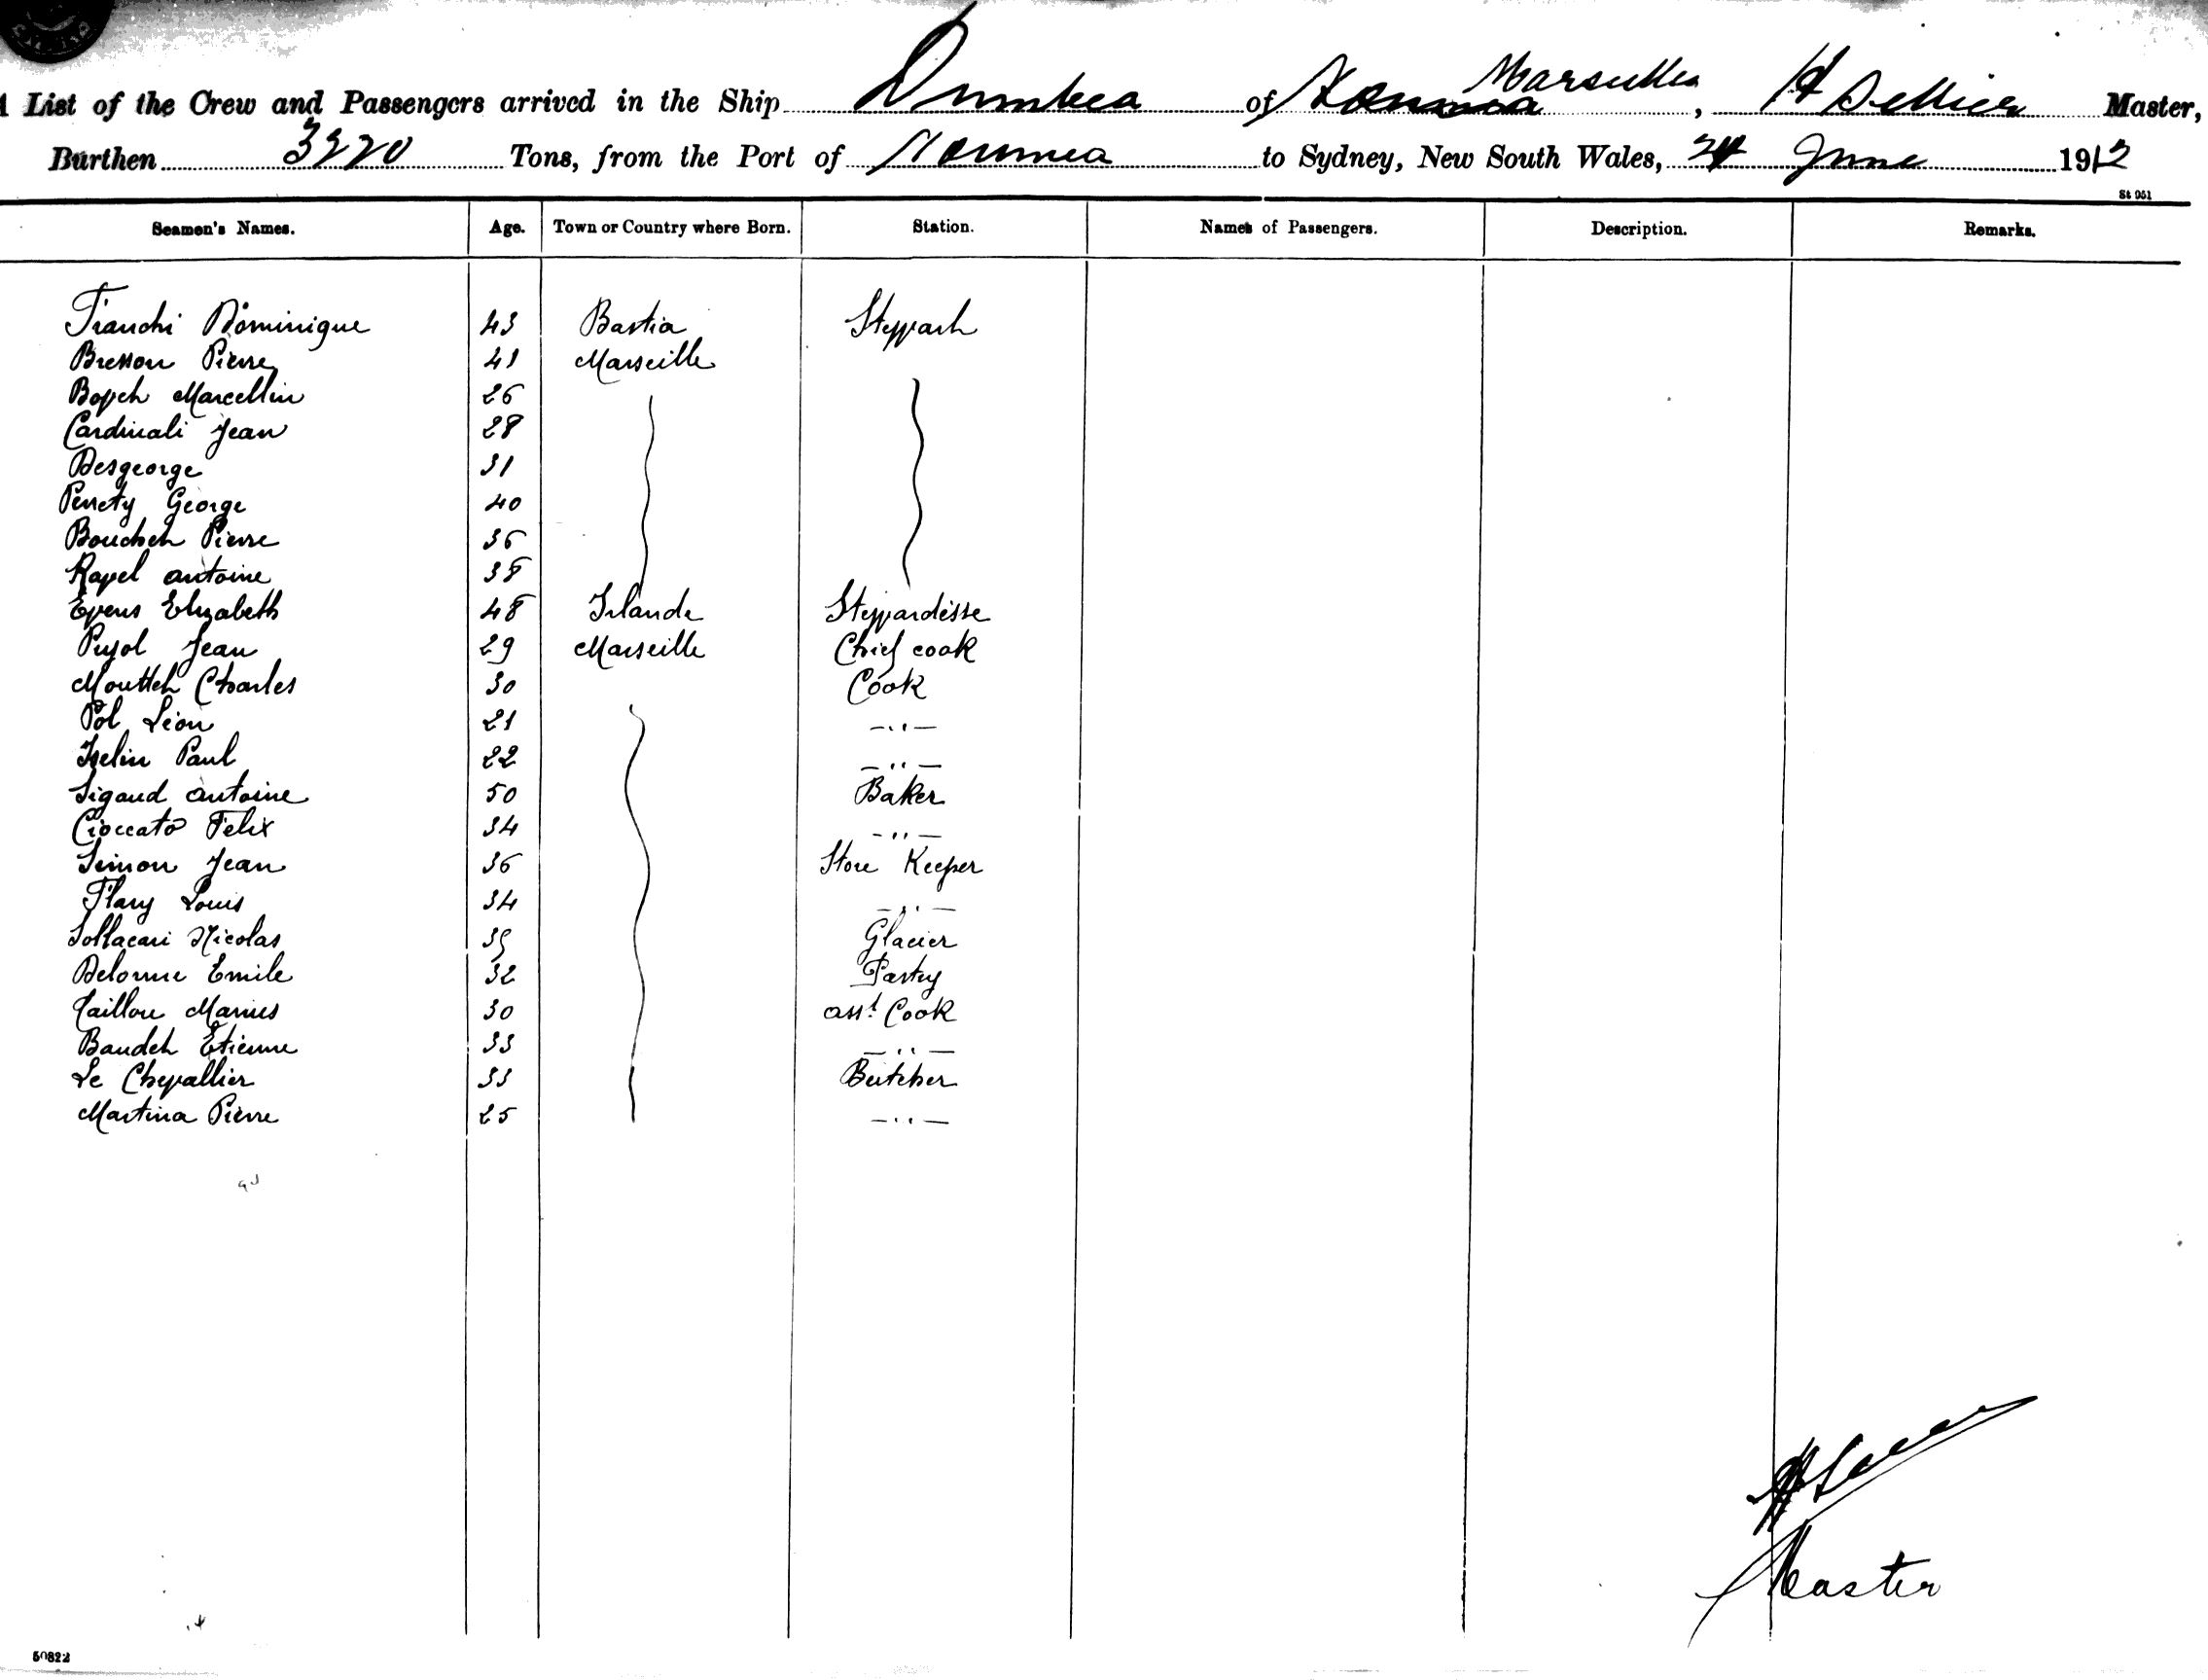 A List of the Crew and Passengers arrived in the Ship Dumbea of Noumea Marseilles, H Sellier Master,
Burthen 3220 Tons, from the Port of Noumea to Sydney, New South Wales, 24 June 1912
St 951
Seamen's Names. Age. Town or Country where Born. Station. Names of Passengers. Description. Remarks.
Franchi Dominique 43 Bastia
Bresson Pierre 41 Marseille
Marcellin 26
Cardinali Jean 28
Desgeorge 31
George 40
Pierre 36
Rapel antoine 38
Evens Elizabeth 48 Irlande Stewardesse
Pujol Jean 29 Marseille Chief cook
Charles 30 Cook
Pol Léon 21 - " -
Iselin Paul 22 - " -
Sigaud antoine 50 Baker
Cioccato Felix 34 - " -
Simon Jean 36 Store Keeper
Flary Louis 34 - " -
Sollacari Nicolas 39 Glacier
Delorme Emile 32 Pastry
Marius 30 asst Cook
Etienne 33 - " -
Le Chevallier 33 Butcher
Martina Pierre 25 - " -
Master
50822